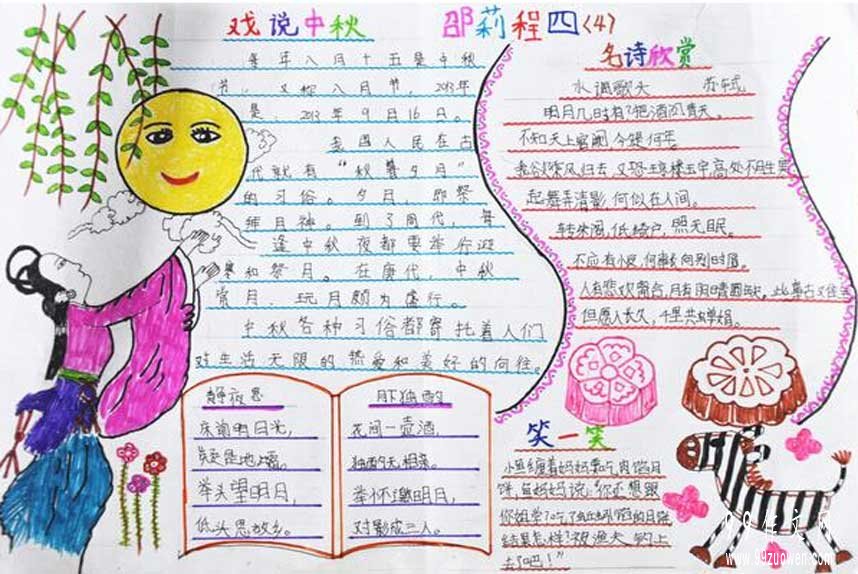 戏说中秋
邵莉程四(4)
每年八月十五是中秋
节，又称八月节，2013年
是，2013年9月16日。
我国人民在古
代就有“秋暮夕月”
的习俗。夕月，即祭
拜月神。到了周代，每
逢中秋夜都要举行迎
寒和祭月。在唐代，中秋
赏月、玩月颇为盛行。
中秋各种习俗都寄托着人们
对生活无限的热爱和美好的向往。
名诗欣赏
水调歌头 苏轼
明月几时有？把酒问青天。
不知天上宫阙，今夕是何年。
我欲乘风归去，又恐琼楼玉宇，高处不胜寒
起舞弄清影，何似在人间。
转朱阁，低绮户，照无眠。
不应有恨，何事长向别时圆。
人有悲欢离合，月有阴晴圆缺，此事古又难全
但愿人长久，千里共婵娟。
静夜思
床前明月光，
疑是地上霜。
举头望明月，
低头思故乡。
月下独酌
花间一壶酒，
独酌无相亲。
举杯邀明月，
对影成三人。
笑一笑
小鱼缠着妈妈要吃肉馅月
饼，鱼妈妈说：“你还想跟
你姐学？吃了蚯蚓馅的月饼
结果怎样？被渔夫钓上
去了吧！”
99作文网
www.99zuowen.com